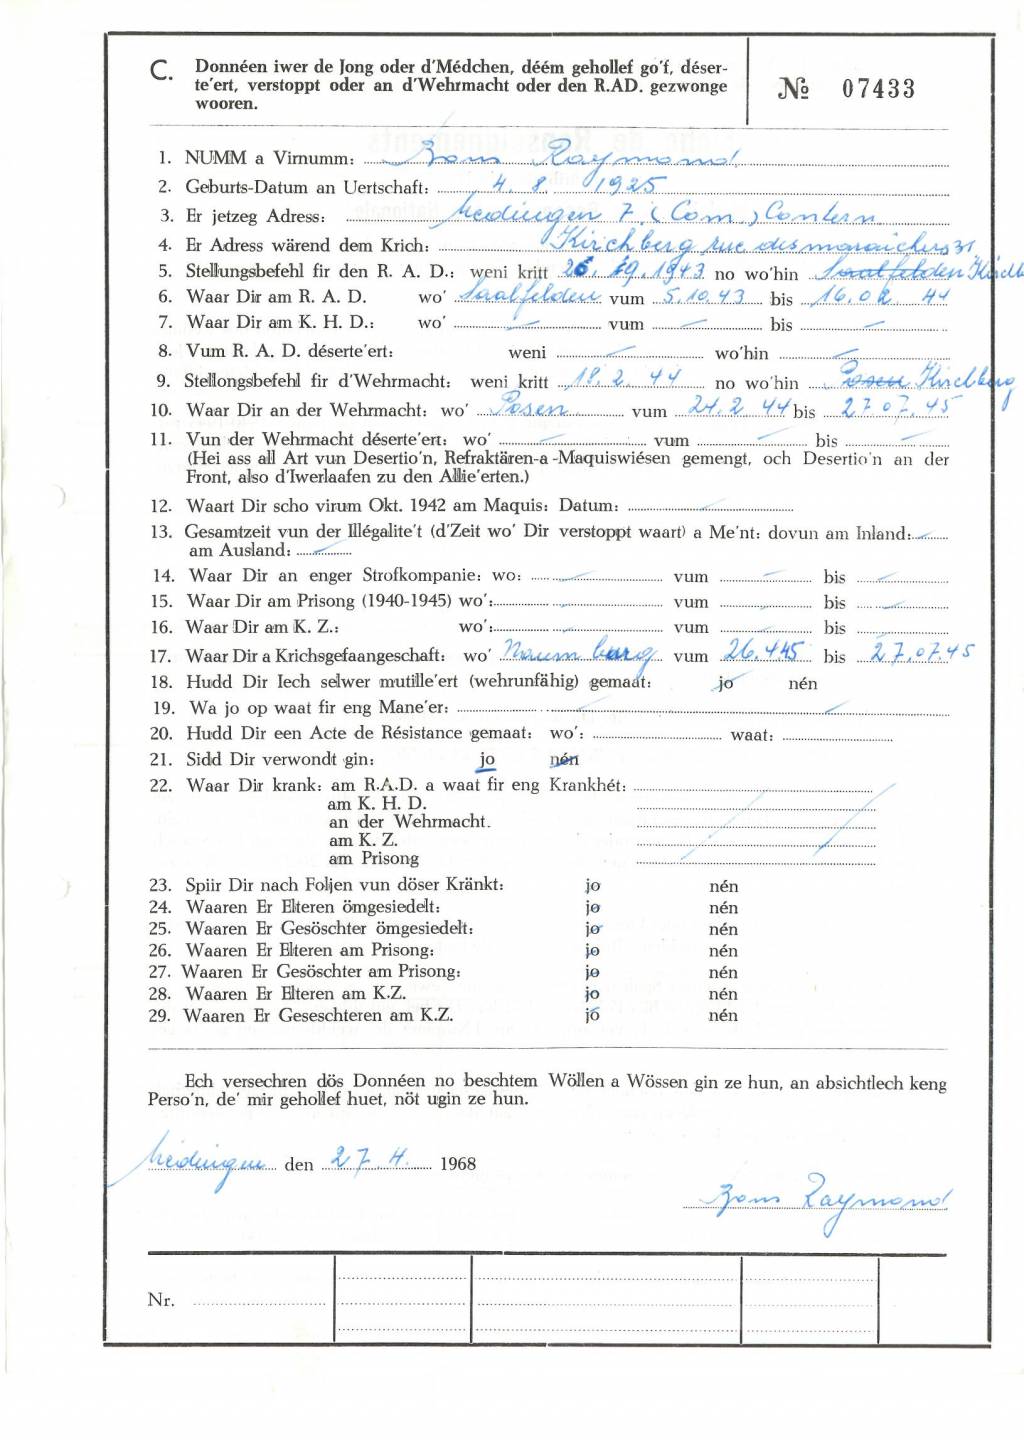 C. Donnéen iwer de Jong oder d'Médchen, déém gehollef go'f, déser-
te'ert, verstoppt oder an d'Wehrmacht oder den R.AD. gezwonge
wooren.
№ 07433
1. NUMM a Virnumm: Bons Raymond
2. Geburts-Datum an Uertschaft: 4. 8. 1925
3. Er jetzeg Adress: Medingen 7 (Com) Contern
4. Er Adress wärend dem Krich: Kirchberg rue des maraichers 31
5. Stellungsbefehl fir den R. A. D.: weni kritt 26. 19. 1943 no wo'hin Saalfelden Kirchb
6. Waar Dir am R. A. D. wo' Saalfelden vum 5.10.43 bis 16.02. 44
7. Waar Dir am K. H. D.: wo' — vum — bis —
8. Vum R. A. D. déserte'ert: weni — wo'hin —
9. Stellongsbefehl fir d'Wehrmacht: weni kritt 18. 2. 44 no wo'hin Posen Kirchberg
10. Waar Dir an der Wehrmacht: wo' Posen vum 24.2.44 bis 27.07.45
11. Vun der Wehrmacht déserte'ert: wo' — vum — bis —
(Hei ass all Art vun Desertio'n, Refraktären-a-Maquiswiésen gemengt, och Desertio'n an der
Front, also d'Iwerlaafen zu den Allie'erten.)
12. Waart Dir scho virum Okt. 1942 am Maquis: Datum:
13. Gesamtzeit vun der Illégalite't (d'Zeit wo' Dir verstoppt waart) a Me'nt: dovun am Inland:
am Ausland:
14. Waar Dir an enger Strofkompanie: wo: — vum — bis —
15. Waar Dir am Prisong (1940-1945) wo': — vum — bis —
16. Waar Dir am K. Z.: wo': — vum — bis —
17. Waar Dir a Krichsgefaangeschaft: wo' Naumburg vum 26.4.45 bis 27.07.45
18. Hudd Dir Iech selwer mutille'ert (wehrunfähig) gemaat: jo nén
19. Wa jo op waat fir eng Mane'er:
20. Hudd Dir een Acte de Résistance gemaat: wo': waat:
21. Sidd Dir verwondt gin: jo nén
22. Waar Dir krank: am R.A.D. a waat fir eng Krankhét:
am K. H. D.
an der Wehrmacht.
am K. Z.
am Prisong
23. Spiir Dir nach Foljen vun döser Kränkt: jo nén
24. Waaren Er Elteren ömgesiedelt: jo nén
25. Waaren Er Gesöschter ömgesiedelt: jo nén
26. Waaren Er Elteren am Prisong: jo nén
27. Waaren Er Gesöschter am Prisong: jo nén
28. Waaren Er Elteren am K.Z. jo nén
29. Waaren Er Geseschteren am K.Z. jo nén
Ech versechren dös Donnéen no beschtem Wöllen a Wössen gin ze hun, an absichtlech keng
Perso'n, de' mir gehollef huet, nöt ugin ze hun.
Medingen den 27. 4. 1968
Bons Raymond
Nr.